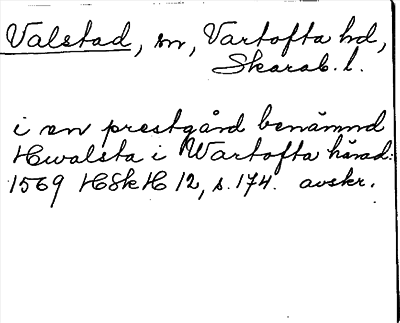 Valstad, sn, Vartofta hd,
Skarab. l.
i en prestgård benämnd
Hwalsta i Wartofta härad:
1569 HSkH 12, s. 174. avskr.